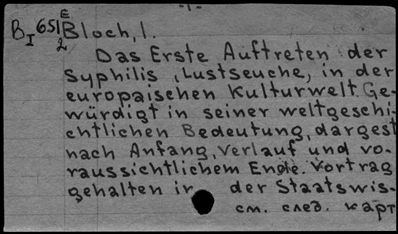 B I 651 E/2 Bloch, I.
Das Erste Auftreten der
Syphilis, Lustseuche, in der
europaischen Kulturwelt Ge-
würdigt in seiner weltgeschi-
chtlichen Bedeutung, dargest
nach Anfang, Verlauf und vo-
raussichtlichem Ende. Vortrag
gehalten in der Staatswis-
см. след. карт